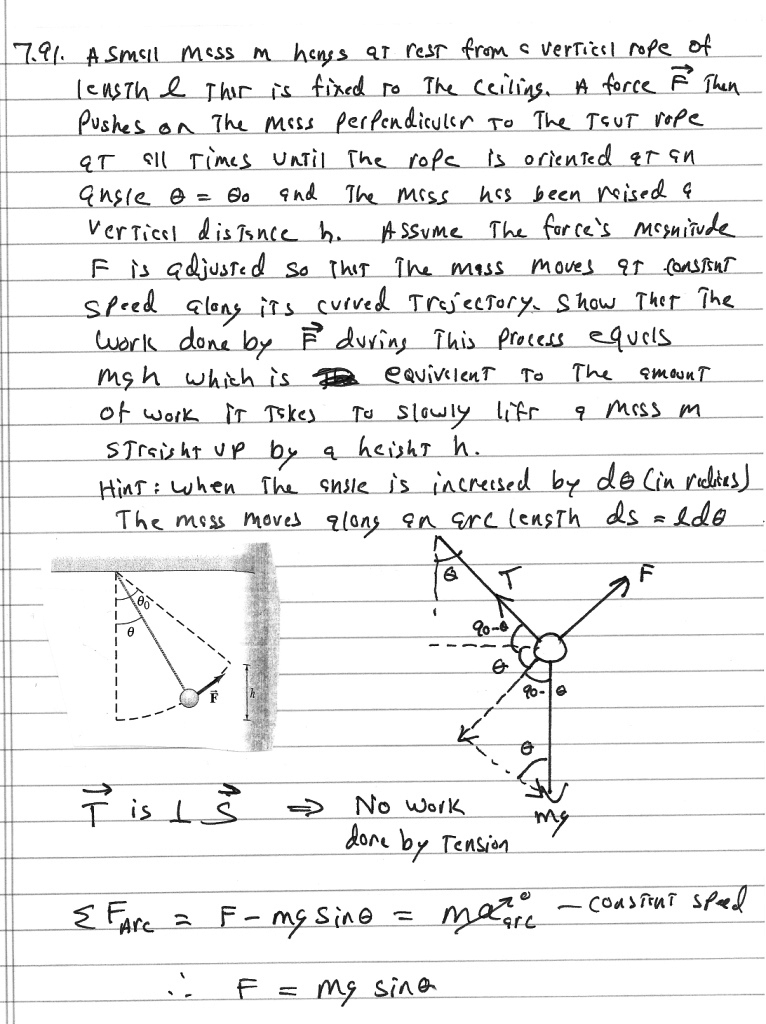 7.91. A small mass m hangs at rest from a vertical rope of
length l that is fixed to the ceiling. A force F⃗ then
pushes on the mass perpendicular to the taut rope
at all times until the rope is oriented at an
angle θ = θ₀ and the mass has been raised a
vertical distance h. Assume the force's magnitude
F is adjusted so that the mass moves at constant
speed along its curved trajectory. Show that the
work done by F⃗ during this process equals
mgh which is equivalent to the amount
of work it takes to slowly lift a mass m
straight up by a height h.
Hint: when the angle is increased by dθ (in radians)
The mass moves along an arc length ds = ldθ
θ₀
θ
F⃗
h
θ
T
F
90-θ
θ
90-θ
θ
mg
T⃗ is ⊥ S⃗ ⇒ No work
done by Tension
Σ F_Arc = F - mg sinθ = ma_arc → 0 — constant speed
∴ F = mg sinθ